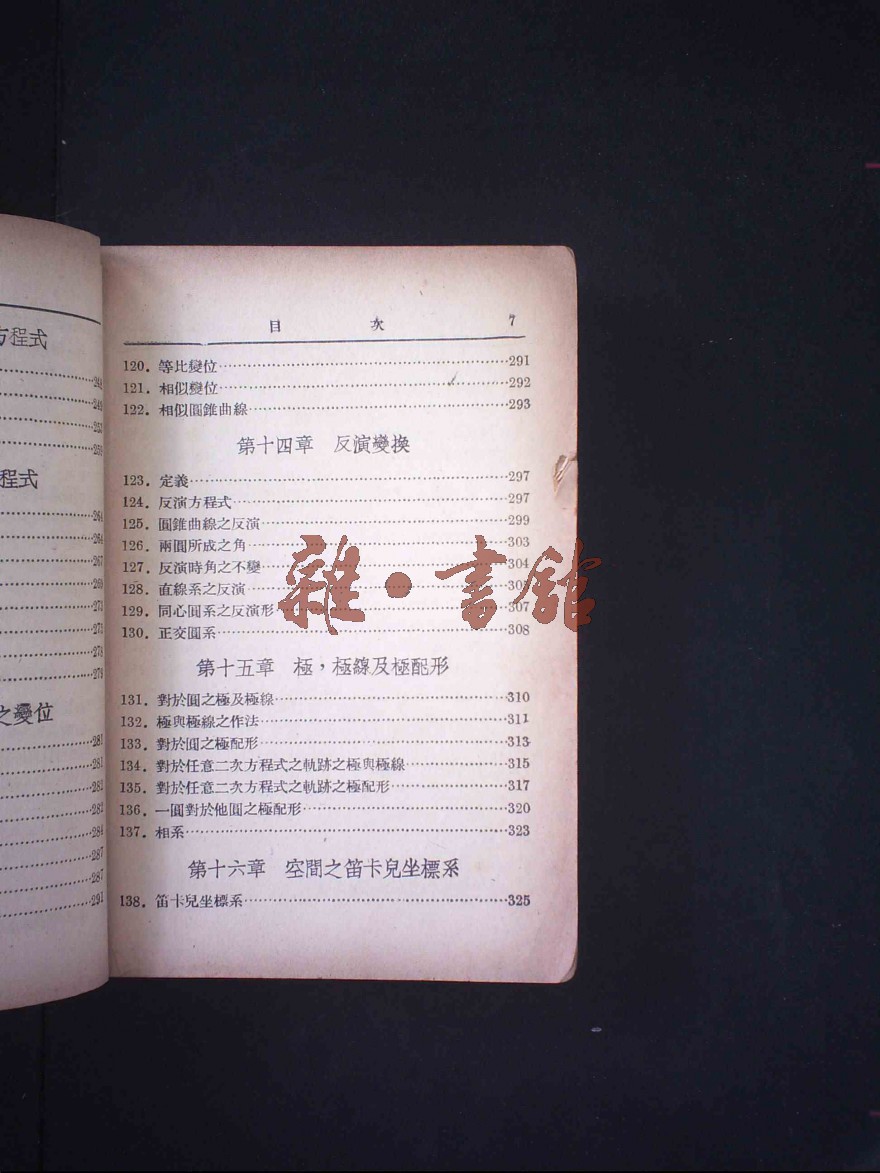 方程式
248
249
253
259
程式
264
264
267
269
273
273
278
279
之變位
281
281
282
282
284
287
287
291
目 次 7
120. 等比變位 291
121. 相似變位 292
122. 相似圓錐曲線 293
第十四章 反演變換
123. 定義 297
124. 反演方程式 297
125. 圓錐曲線之反演 299
126. 兩圓所成之角 303
127. 反演時角之不變 304
128. 直線系之反演
129. 同心圓系之反演形 307
130. 正交圓系 308
雜·書館
第十五章 極,極線及極配形
131. 對於圓之極及極線 310
132. 極與極線之作法 311
133. 對於圓之極配形 313
134. 對於任意二次方程式之軌跡之極與極線 315
135. 對於任意二次方程式之軌跡之極配形 317
136. 一圓對於他圓之極配形 320
137. 相系 323
第十六章 空間之笛卡兒坐標系
138. 笛卡兒坐標系 325